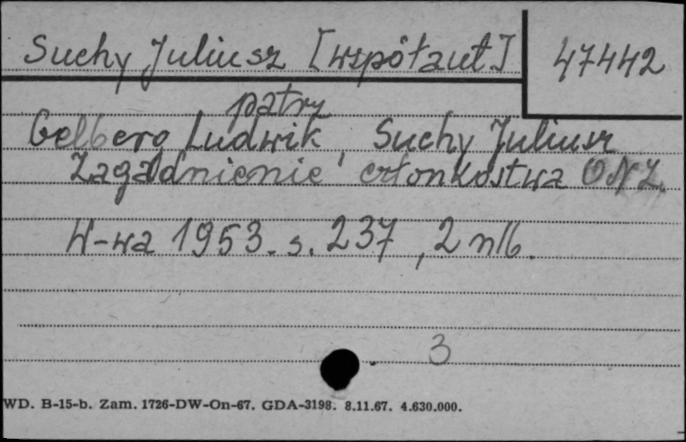 Suchy Juliusz [współaut]
47442
patrz
Gelberg Ludwik, Suchy Juliusz
Zagadnienie członkostwa ONZ.
W-wa 1953. s. 237, 2 nlb.
3
WD. B-15-b. Zam. 1726-DW-On-67. GDA-3198. 8.11.67. 4.630.000.